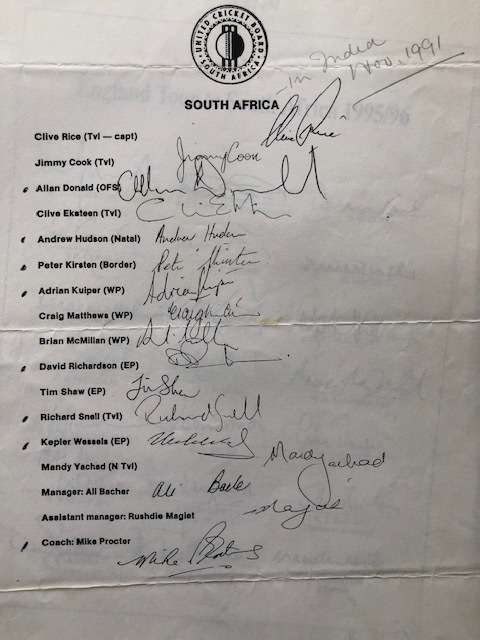 UNITED CRICKET BOARD
SOUTH AFRICA
in India
Nov, 1991
SOUTH AFRICA
Clive Rice (Tvl — capt)
Jimmy Cook (Tvl) Jimmy Cook
Allan Donald (OFS) Allan Donald
Clive Eksteen (Tvl)
Andrew Hudson (Natal) Andrew Hudson
Peter Kirsten (Border) Peter Kirsten
Adrian Kuiper (WP) Adrian Kuiper
Craig Matthews (WP)
Brian McMillan (WP)
David Richardson (EP)
Tim Shaw (EP) Tim Shaw
Richard Snell (Tvl) Richard Snell
Kepler Wessels (EP)
Mandy Yachad (N Tvl) Mandy Yachad
Manager: Ali Bacher Ali Bacher
Assistant manager: Rushdie Magiet
Coach: Mike Procter Mike Procter